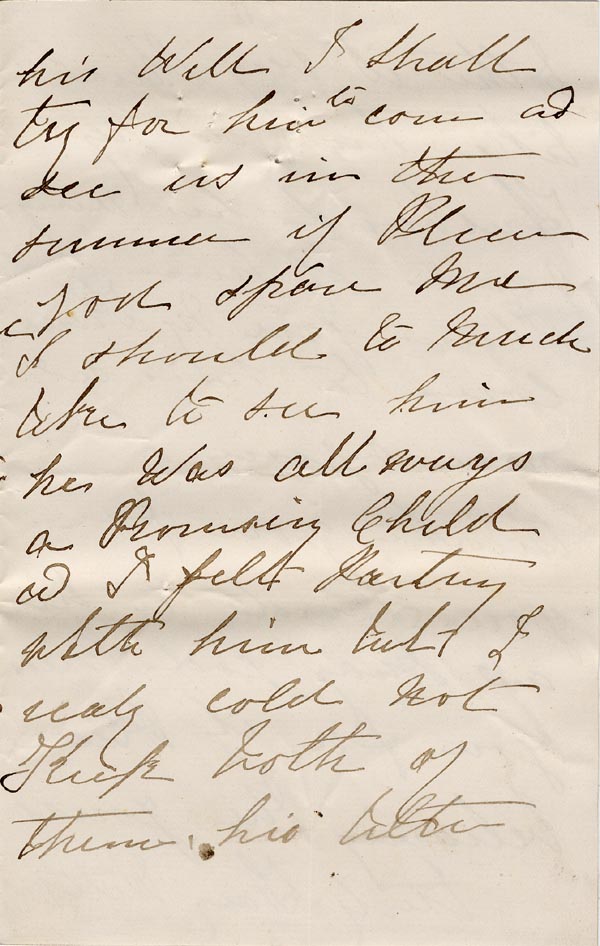 his Will I shall
try for him to come ad
see us in the
summer if Please
god spare Me
I should to Much
like to see him
he Was all ways
a Promising Child
ad I felt Parting
With him but I
realy cold not
Keep both of
them. his